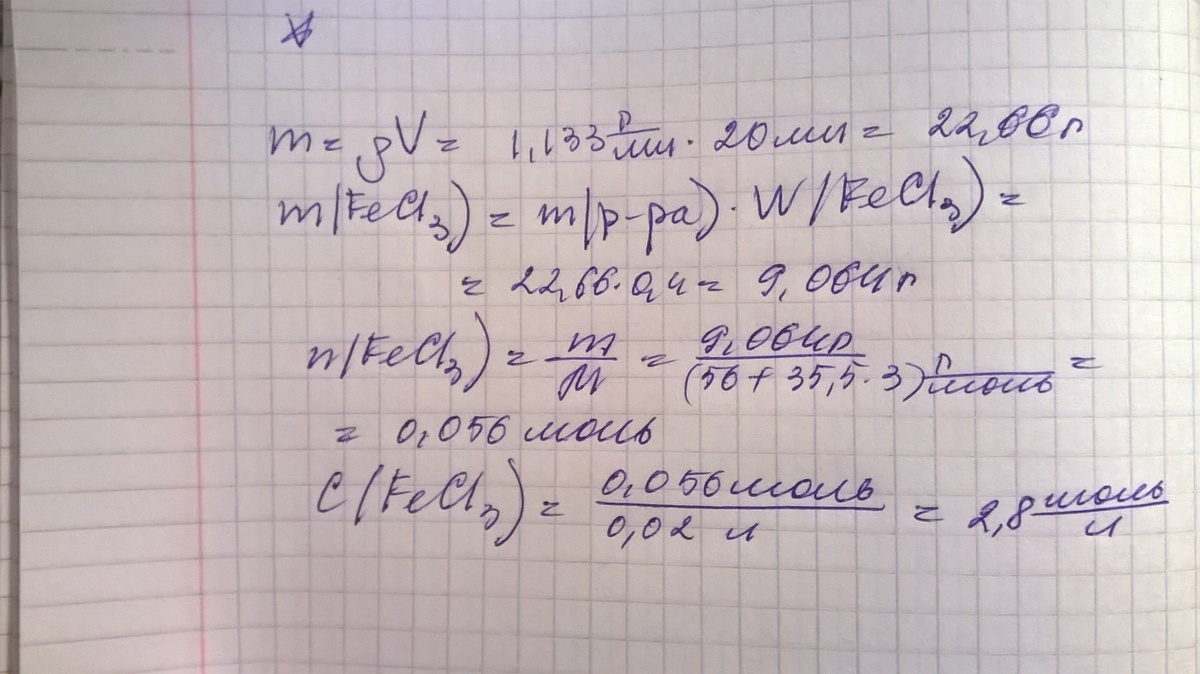 m = ρV = 1,133 г/мл · 20 мл = 22,66 г
m(FeCl₃) = m(р-ра) · W(FeCl₃) =
= 22,66 · 0,4 = 9,064 г
n(FeCl₃) = m/M = 9,064 г/(56 + 35,5 · 3) г/моль =
= 0,056 моль
C(FeCl₃) = 0,056 моль/0,02 л = 2,8 моль/л